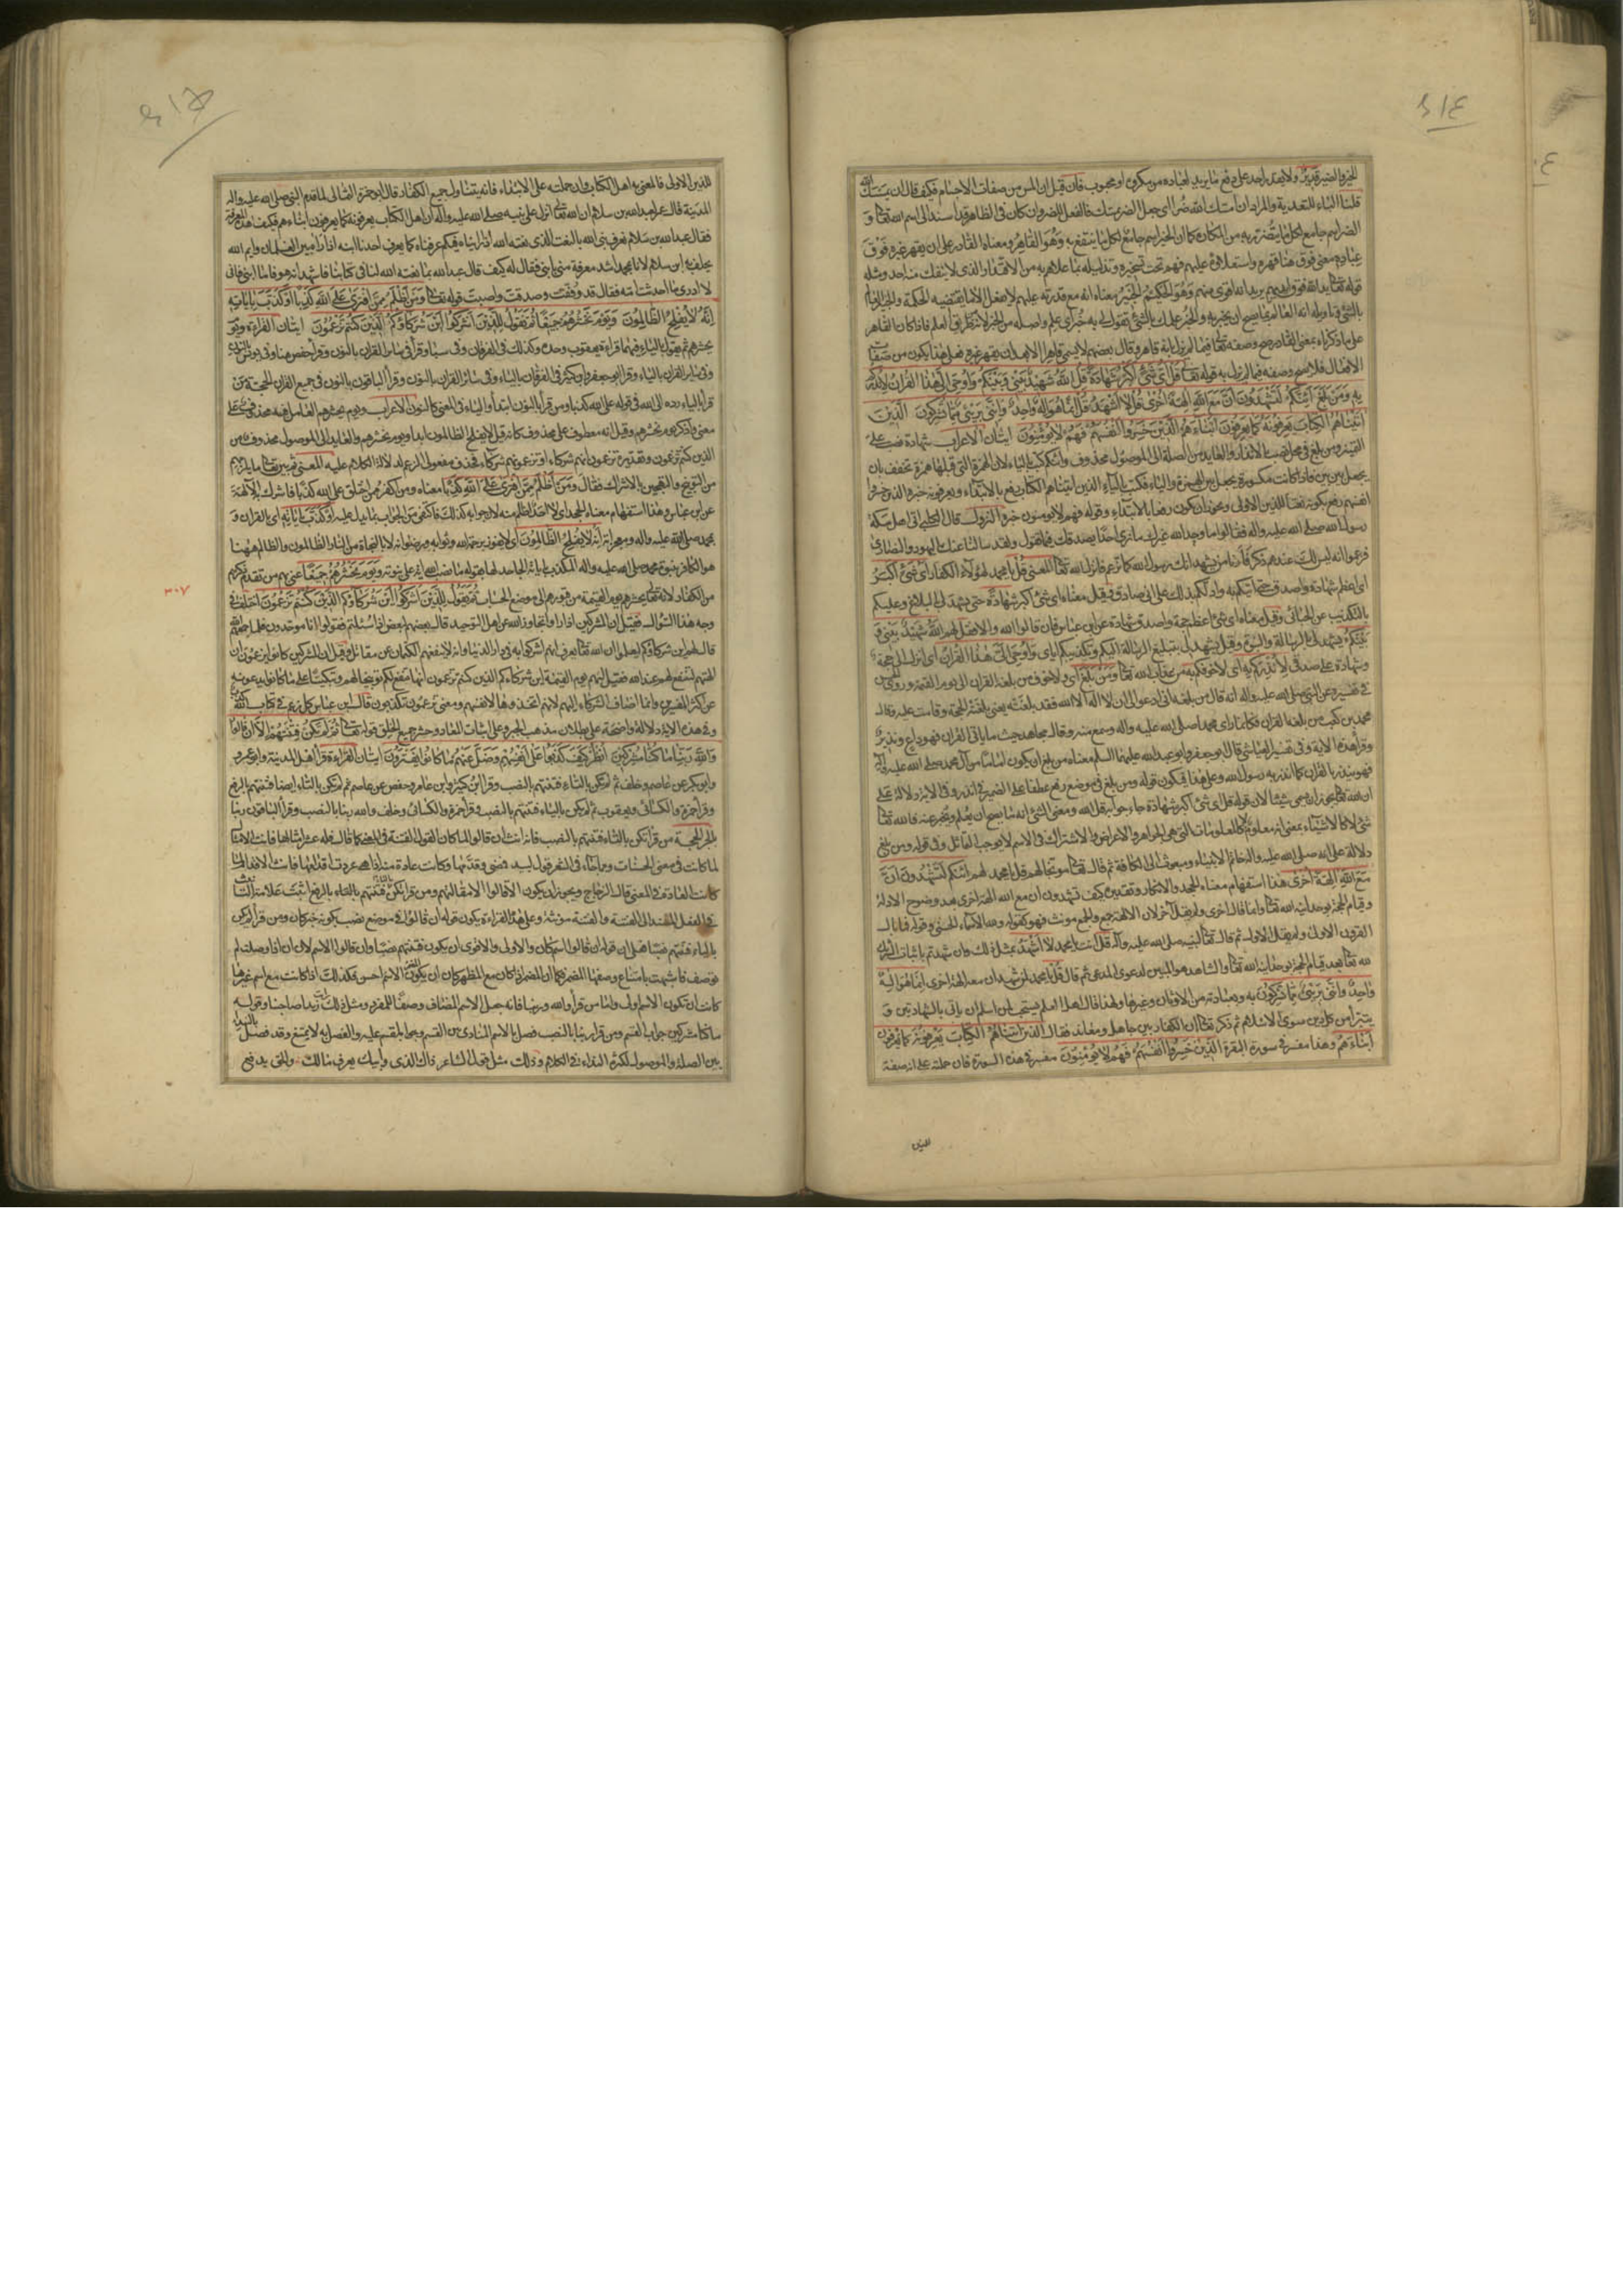 الخير والضير قدير ولا يقدر احد على دفع ما يريد لعباده من مكروه او محبوب فان قيل ان المس من صفات الاجسام فكيف قال ان يمسسك الله
قلنا الباء للتعدية والمراد ان امسك الله ضرا اى جعل الضر يمسك فالفعل للضر وان كان فى الظاهر قد اسند الى اسم الله تعالى و
الضر اسم جامع لكل ما يتضرر به من المكاره كما ان الخير اسم جامع لكل ما ينتفع به وَهُوَ القَاهِرُ ومعناه القادر على ان يقهر غيره فَوْقَ
عِبَادِهِ معنى فوق هنا قهره واستعلاؤه عليهم فهم تحت تسخيره وتذليله بما علاهم به من الاقتدار الذى لا ينفك منه احد ومثله
قوله تعالى يد الله فوق ايديهم يريد انه اقوى منهم وَهُوَ الحَكِيمُ الخَبِيرُ معناه انه مع قدرته عليهم لا يفعل الا ما تقتضيه الحكمة والخبير العالم
بالشئ وتاويله انه العالم بما يصح ان يخبر به والخبر علمك بالشئ تقول لى به خبر اى علم واصله من الخبر لانه طريق العلم فاذا كان القاهر
على ما ذكرناه بمعنى القادر صح وصفه تعالى فيما لم يزل بانه قاهر وقال بعضهم لا يسمى قاهرا الا بعد ان يقهر غيره فعلى هذا يكون من صفات
الافعال فلا يصح وصفه فيما لم يزل به قوله تعالى قُلْ اَىُّ شَىْءٍ اَكْبَرُ شَهَادَةً قُلِ اللهُ شَهِيدٌ بَيْنِى وَبَيْنَكُمْ وَاُوحِىَ اِلَىَّ هٰذَا القُرْاٰنُ لِاُنْذِرَكُمْ
بِهِ وَمَنْ بَلَغَ اَئِنَّكُمْ لَتَشْهَدُونَ اَنَّ مَعَ اللهِ اٰلِهَةً اُخْرٰى قُلْ لَا اَشْهَدُ قُلْ اِنَّمَا هُوَ اِلٰهٌ وَاحِدٌ وَاِنَّنِى بَرِىءٌ مِمَّا تُشْرِكُونَ الَّذِينَ
اٰتَيْنَاهُمُ الكِتَابَ يَعْرِفُونَهُ كَمَا يَعْرِفُونَ اَبْنَاءَهُمُ الَّذِينَ خَسِرُوا اَنْفُسَهُمْ فَهُمْ لَا يُؤْمِنُونَ ايتان الاعراب شهادة نصب على
التمييز ومن بلغ فى محل نصب بالانذار والعايد من الصلة الى الموصول محذوف وائنكم كتب بالياء لان الهمزة التى قبلها همزة تخفف بان
يجعل بين بين فاذا كانت مكسورة يجعل بين الهمزة والياء فكتب بالياء الذين اتيناهم الكتاب رفع بالابتداء ويعرفونه خبره والذين خسروا
انفسهم رفع بكونه نعتا للذين الاولى ويجوز ان يكون رفعا بالابتداء وقوله فهم لا يؤمنون خبره النزول قال الكلبى اتى اهل مكة
رسول الله صلى الله عليه واله فقالوا ما وجد الله غيرك رسولا ما نرى احدا يصدقك فيما تقول ولقد سالنا عنك اليهود والنصارى
فزعموا انه ليس لك عندهم ذكر فارنا من يشهد انك رسول الله كما تزعم فانزل الله تعالى المعنى قُلْ يا محمد لهؤلاء الكفار اَىُّ شَىْءٍ اَكْبَرُ
اى اعظم شَهَادَةً واصدق حتى اتيكم به وادلكم بذلك على انى صادق وقيل معناه اى شئ اكبر شهادة حتى يشهد لى بالبلاغ وعليكم
بالتكذيب عن الجبائى وقيل معناه اى شئ اعظم حجة واصدق شهادة عن ابن عباس فان قالوا الله والا فقل لهم اللهُ شَهِيدٌ بَيْنِى وَ
بَيْنَكُمْ يشهد لى بالرسالة والنبوة وقيل يشهد لى بتبليغ الرسالة اليكم وتكذيبكم اياى وَاُوحِىَ اِلَىَّ هٰذَا القُرْاٰنُ اى انزل الى حجة
وشهادة على صدقى لِاُنْذِرَكُمْ بِهِ اى لاخوفكم به من عقاب الله تعالى وَمَنْ بَلَغَ اى ولاخوف من بلغه القران الى يوم القيمة وروى الحسن
فى تفسيره عن النبى صلى الله عليه واله انه قال من بلغه انى ادعو الى ان لا اله الا الله فقد بلغه يعنى بلغته الحجة وقامت عليه وقال
محمد بن كعب من بلغه القران فكانما راى محمدا صلى الله عليه واله وسمع منه وقال مجاهد حيث ما ياتى القران فهو داع ونذير
وقرأ هذه الاية وفى تفسير العياشى قال ابو جعفر وابو عبد الله عليهما السلم معناه من بلغ ان يكون اماما من آل محمد صلى الله عليه واله
فهو ينذر بالقران كما انذر به رسول الله وعلى هذا فيكون قوله ومن بلغ فى موضع رفع عطفا على الضمير فى انذر وفى الاية دلالة على
ان الله تعالى يجوز ان يسمى شيئا لان قوله قل اى شئ اكبر شهادة جاء جوابه قل الله ومعنى الشئ انه ما يصح ان يعلم ويخبر عنه فالله تعالى
شئ لا كالاشياء بمعنى انه معلوم لا كالمعلومات التى هى الجواهر والاعراض والاشتراك فى الاسم لا يوجب التماثل وفى قوله ومن بلغ
دلالة على انه صلى الله عليه واله خاتم الانبياء ومبعوث الى الكافة ثم قال تعالى موبخا لهم قل يا محمد لهم ائنكم لَتَشْهَدُونَ اَنَّ
مَعَ اللهِ اٰلِهَةً اُخْرٰى هذا استفهام معناه الجحد والانكار وتقديره كيف تشهدون ان مع الله الهة اخرى بعد وضوح الادلة
وقيام الحجة بوحدانية الله تعالى وانما قال اخرى ولم يقل اخر لان الالهة جمع والجمع مونث فهو كقوله ولله الاسماء الحسنى وقوله فما بال
القرون الاولى ولم يقل الاول ثم قال تعالى لنبيه صلى الله عليه واله قُلْ انت يا محمد لَا اَشْهَدُ بمثل ذلك وان شهدتم باثبات الشريك
لله تعالى بعد قيام الحجة بوحدانية الله تعالى والشاهد هو المبين لدعوى المدعى ثم قال قل يا محمد لمن شهد ان معه الهة اخرى اِنَّمَا هُوَ اِلٰهٌ
وَاحِدٌ وَاِنَّنِى بَرِىءٌ مِمَّا تُشْرِكُونَ به وبعبادته من الاوثان وغيرها ولهذا قال اهل العلم يستحب لمن اسلم ان ياتى بالشهادتين و
يتبرأ من كل دين سوى الاسلام ثم ذكر تعالى ان الكفار بين جاهل ومعاند فقال الَّذِينَ اٰتَيْنَاهُمُ الكِتَابَ يَعْرِفُونَهُ كَمَا يَعْرِفُونَ
اَبْنَاءَهُمْ وهذا مفسر فى سورة البقرة الَّذِينَ خَسِرُوا اَنْفُسَهُمْ فَهُمْ لَا يُؤْمِنُونَ مفسر فى هذه السورة فان حملته على انه صفة
للذين الاولى فالمعنى به اهل الكتاب وان حملته على الابتداء فانه يتناول جميع الكفار قال ابو حمزة الثمالى لما قدم النبى صلى الله عليه واله
المدينة قال عمر لعبد الله بن سلام ان الله تعالى انزل على نبيه صلى الله عليه واله ان اهل الكتاب يعرفونه كما يعرفون ابناءهم فكيف هذه المعرفة
فقال عبد الله بن سلام نعرف نبى الله بالنعت الذى نعته الله اذا رايناه فيكم عرفناه كما يعرف احدنا ابنه اذا رآه بين الغلمان وايم الله
يحلف به ابن سلام لانا بمحمد اشد معرفة منى بابنى فقال له كيف قال عبد الله بما نعته الله لنا فى كتابنا فاشهد انه هو فاما ابنى فانى
لا ادرى ما احدثت امه فقال قد وفقت وصدقت واصبت قوله تعالى وَمَنْ اَظْلَمُ مِمَّنِ افْتَرٰى عَلَى اللهِ كَذِبًا اَوْ كَذَّبَ بِاٰيَاتِهِ
اِنَّهُ لَا يُفْلِحُ الظَّالِمُونَ وَيَوْمَ نَحْشُرُهُمْ جَمِيعًا ثُمَّ نَقُولُ لِلَّذِينَ اَشْرَكُوا اَيْنَ شُرَكَاؤُكُمُ الَّذِينَ كُنْتُمْ تَزْعُمُونَ ايتان القراءة ويوم
يحشرهم ثم يقول بالياء فيهما قراءة يعقوب وحده وكذلك فى الفرقان وفى سبا وقرأ فى سائر القران بالنون وقرأ حفص هنا وفى يونس بالنون
وفى سائر القران بالياء وقرأ ابو جعفر وابن كثير فى الفرقان بالياء وفى سائر القران بالنون وقرأ الباقون بالنون فى جميع القران الحجة من
قرأ بالياء رده الى الله فى قوله على الله كذبا ومن قرأ بالنون ابتدأ والياء فى المعنى كالنون الاعراب ويوم يحشرهم العامل فيه محذوف على
معنى واذكر يوم نحشرهم وقيل انه معطوف على محذوف كانه قيل لا يفلح الظالمون ابدا ويوم نحشرهم والعايد الى الموصول محذوف من
الذين كنتم تزعمون وتقديره تزعمون انهم شركاء او تزعمونهم شركاء فحذف مفعولى الزعم لدلالة الكلام عليه المعنى ثم بين تعالى ما يلزمهم
من التوبيخ والتهجين بالاشراك فقال وَمَنْ اَظْلَمُ مِمَّنِ افْتَرٰى عَلَى اللهِ كَذِبًا معناه ومن اكفر ممن اختلق على الله كذبا فاشرك به الالهة
عن ابن عباس وهذا استفهام معناه الجحد اى لا احد اظلم منه لان جوابه كذلك فاكتفى من الجواب بما يدل عليه اَوْ كَذَّبَ بِاٰيَاتِهِ اى بالقران و
بمحمد صلى الله عليه واله ومعجزاته اِنَّهُ لَا يُفْلِحُ الظَّالِمُونَ اى لا يفوز برحمة الله وثوابه ورضوانه ولا بالنجاة من النار الظالمون والظالم ههنا
هو الكافر بنبوة محمد صلى الله عليه واله المكذب باياته الجاحد لها بقوله ما نصب الله اية على نبوته وَيَوْمَ نَحْشُرُهُمْ جَمِيعًا عنى بهم من تقدم ذكرهم
من الكفار لانه تعالى يحشرهم يوم القيمة من قبورهم الى موضع الحساب ثُمَّ نَقُولُ لِلَّذِينَ اَشْرَكُوا اَيْنَ شُرَكَاؤُكُمُ الَّذِينَ كُنْتُمْ تَزْعُمُونَ اختلف فى
وجه هذا السؤال فقيل ان المشركين اذا راوا تجاوز الله عن اهل التوحيد قال بعضهم لبعض اذا سئلتم فقولوا انا موحدون فلما جمعهم الله
قال لهم اين شركاؤكم ليعلموا ان الله تعالى يعرف انهم اشركوا به فى دار الدنيا وانه لا ينفعهم الكتمان عن مقاتل وقيل ان المشركين كانوا يزعمون ان
الهتهم تشفع لهم عند الله فقيل لهم يوم القيمة اين شركاءكم الذين كنتم تزعمون انها تشفع لكم توبيخا لهم وتبكيتا على ما كانوا يدعونه
عن اكثر المفسرين وانما اضاف الشركاء اليهم لانهم اتخذوها لانفسهم ومعنى تزعمون تكذبون قال ابن عباس كل زعم فى كتاب الله كذب
وفى هذه الاية دلالة واضحة على بطلان مذهب الجبر وعلى اثبات المعاد وحشر جميع الخلق قوله تعالى ثُمَّ لَمْ تَكُنْ فِتْنَتُهُمْ اِلَّا اَنْ قَالُوا
وَاللهِ رَبِّنَا مَا كُنَّا مُشْرِكِينَ اُنْظُرْ كَيْفَ كَذَبُوا عَلٰى اَنْفُسِهِمْ وَضَلَّ عَنْهُمْ مَا كَانُوا يَفْتَرُونَ ايتان القراءة قرأ اهل المدينة وابو عمرو
وابو بكر عن عاصم وخلف ثم لم تكن بالتاء فتنتهم بالنصب وقرأ ابن كثير وابن عامر وحفص عن عاصم ثم لم تكن بالتاء ايضا فتنتهم بالرفع
وقرأ حمزة والكسائى ويعقوب ثم لم يكن بالياء فتنتهم بالنصب وقرأ حمزة والكسائى وخلف والله ربنا بالنصب وقرأ الباقون ربنا
بالجر الحجة من قرأ تكن بالتاء فتنتهم بالنصب فانه انث ان قالوا لما كان القول الفتنة فى المعنى كما قال فله عشر امثالها فانث الامثال
لما كانت فى معنى الحسنات ومما جاء فى الشعر قول لبيد فمضى وقدمها وكانت عادة منه اذا هى عردت اقدامها فانث الاقدام لما
كانت العادة فى المعنى قال الزجاج ويجوز ان يكون الا قالوا الا مقالتهم ومن قرأ تكن فتنتهم بالتاء بالرفع اثبت علامة التانيث
فى الفعل المسند الى الفتنة والفتنة مونثة وعلى هذه القراءة يكون قوله ان قالوا فى موضع نصب بكونه خبر كان ومن قرأ لم يكن
بالياء فتنتهم نصبا فعلى ان قوله ان قالوا اسم كان والاولى والاقوى ان يكون فتنتهم نصبا وان قالوا الاسم لان ان اذا وصلت لم
توصف فاشبهت بامتناع وصفها المضمر فكما ان المضمر اذا كان مع المظهر كان ان يكون المضمر الاسم احسن فكذلك اذا كانت مع اسم غيرها
كانت ان تكون الاسم اولى واما من قرأ والله ربنا فانه جعل الاسم المضاف وصفا للمفرد ومثل ذلك رايت زيدا صاحبنا وقوله
ما كنا مشركين جواب القسم ومن قرأ ربنا بالنصب فصل بالاسم المنادى بين القسم وجوابه المقسم عليه والفصل به لا يمتنع وقد فصل بالنداء
بين الصلة والموصول لكثرة النداء فى الكلام وذلك مثل قول الشاعر ذاك الذى وابيك يعرف مالك والحق يدفع
للذين
٣٠٧